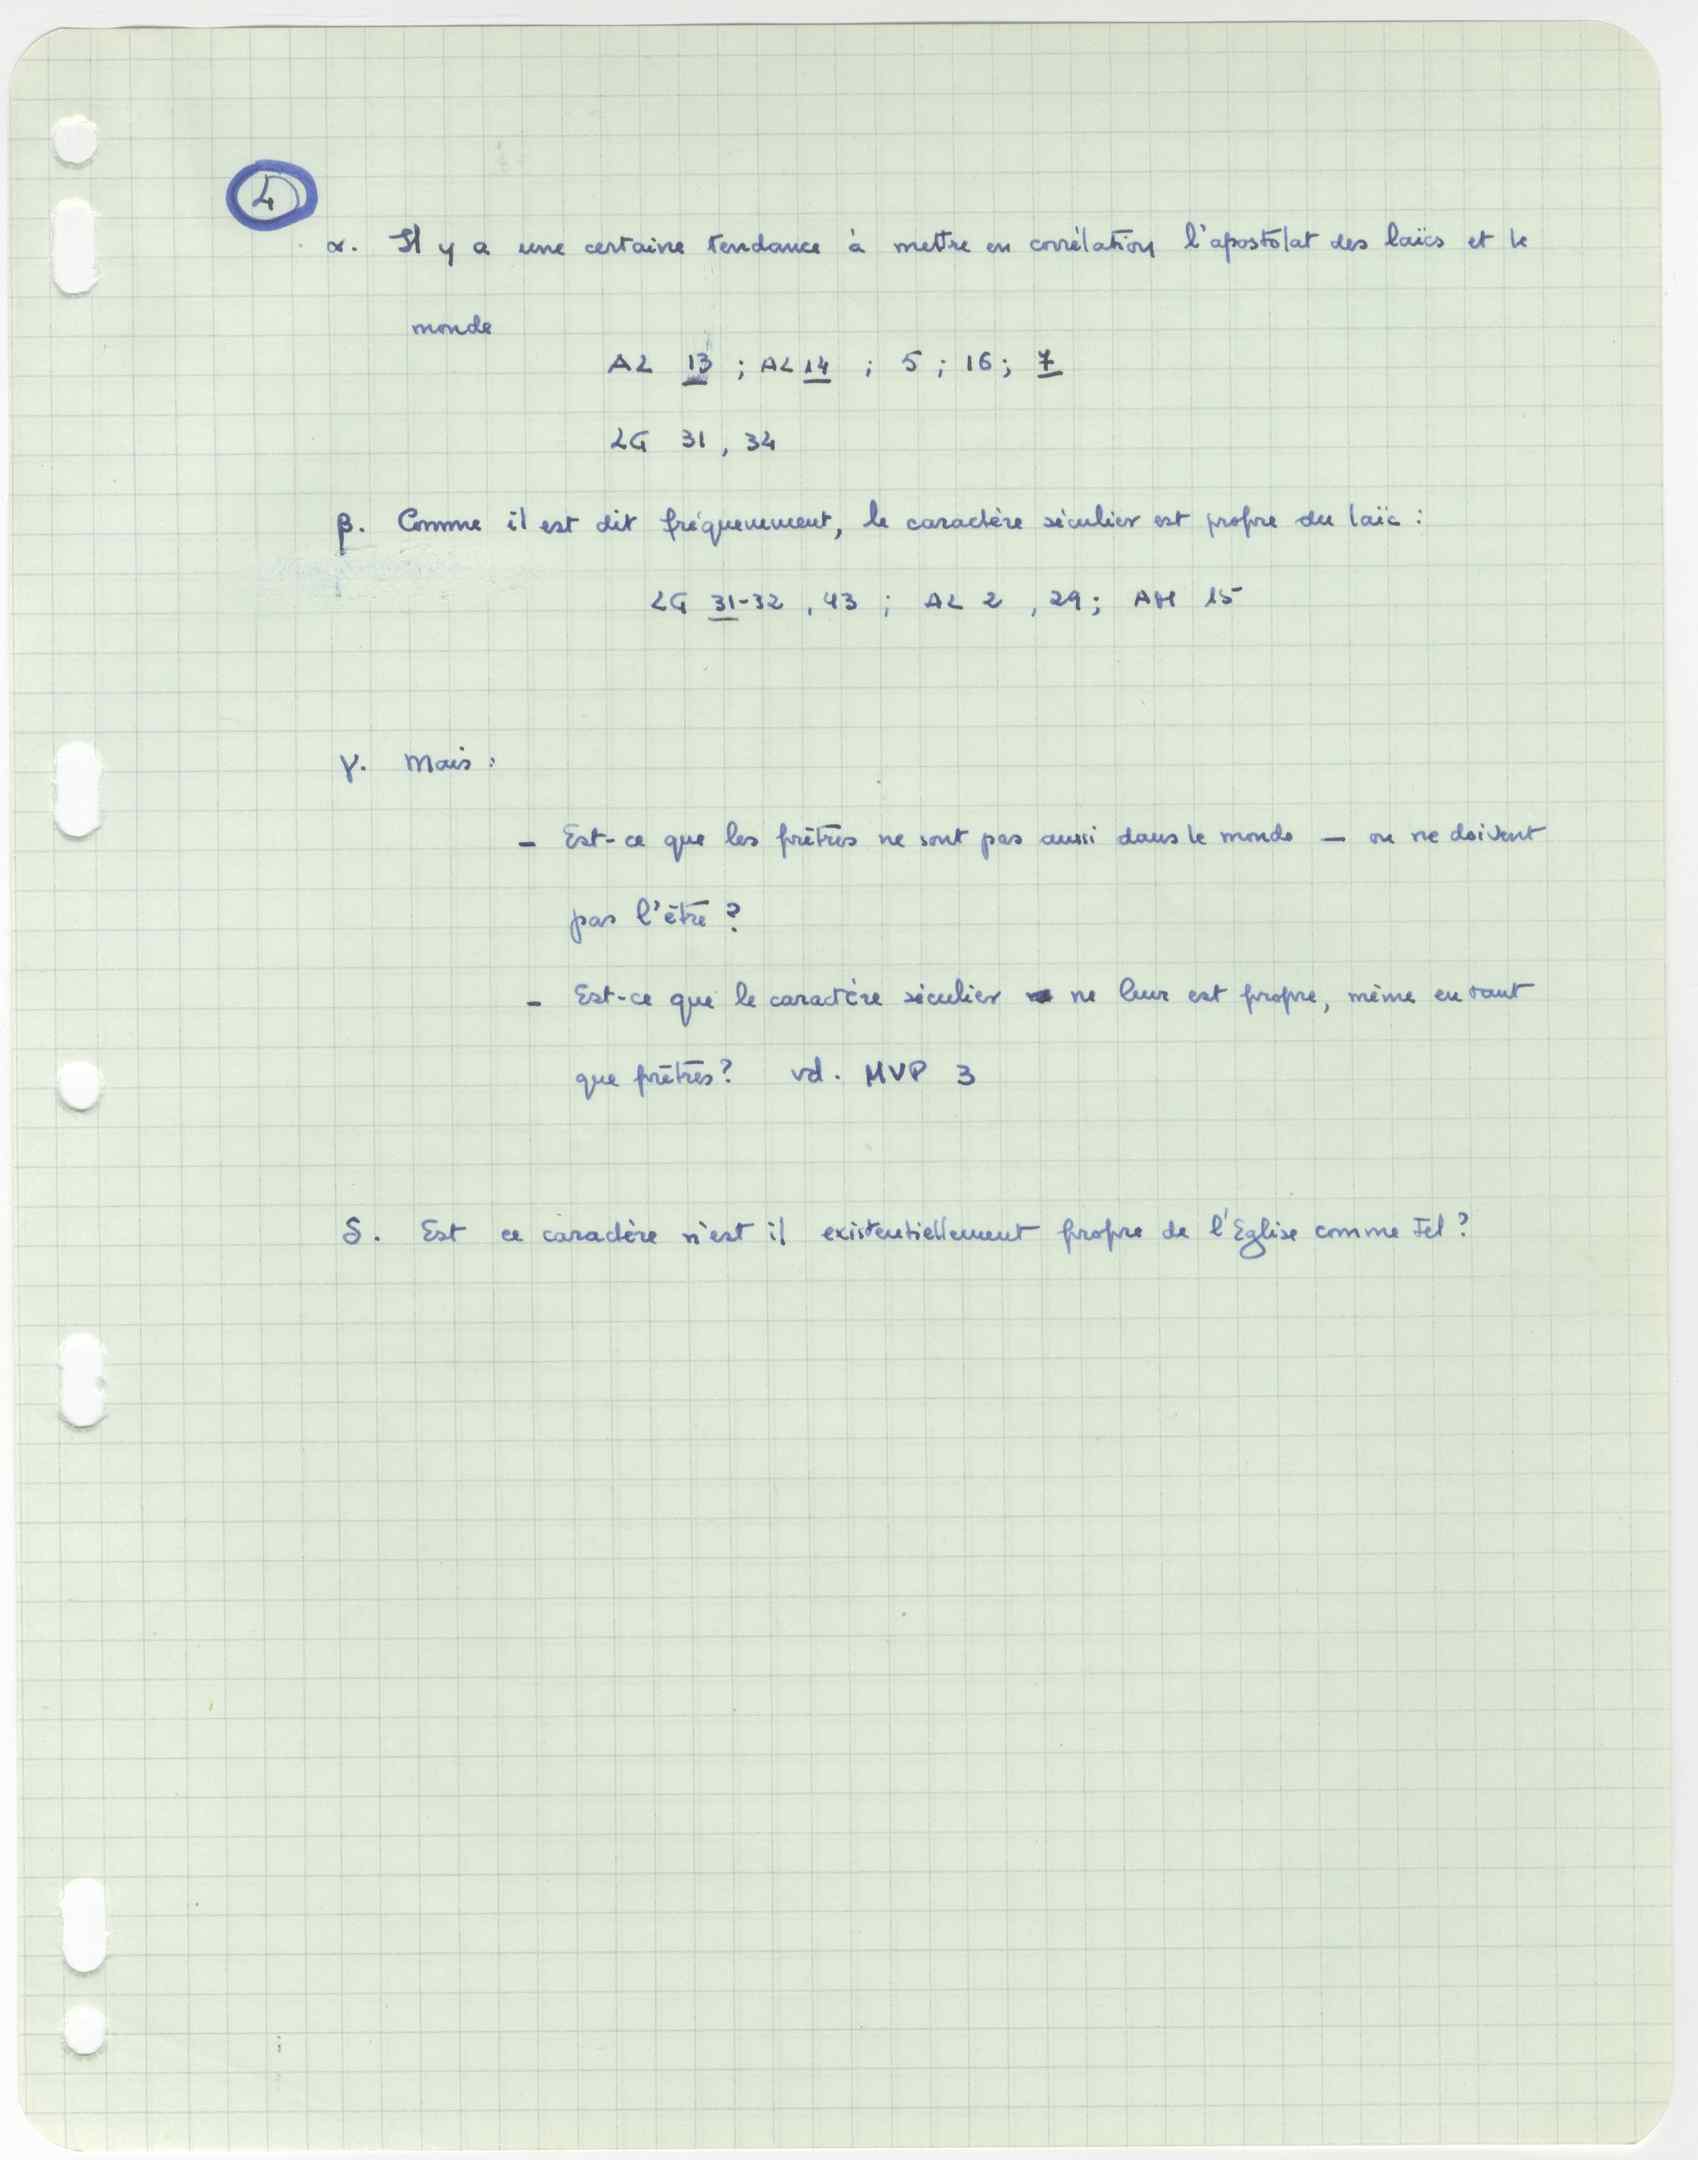 4
α. Il y a une certaine tendance à mettre en corrélation l'apostolat des laïcs et le
monde
AL 13 ; AL 14 ; 5 ; 16 ; 7
LG 31, 34
β. Comme il est dit fréquemment, le caractère séculier est propre du laïc :
LG 31-32, 43 ; AL 2, 29 ; AM 15
γ. Mais :
- Est-ce que les prêtres ne sont pas aussi dans le monde — ou ne doivent
pas l'être ?
- Est-ce que le caractère séculier ne leur est propre, même en tant
que prêtres ? vd. MVP 3
δ. Est ce caractère n'est il existentiellement propre de l'Eglise comme tel ?